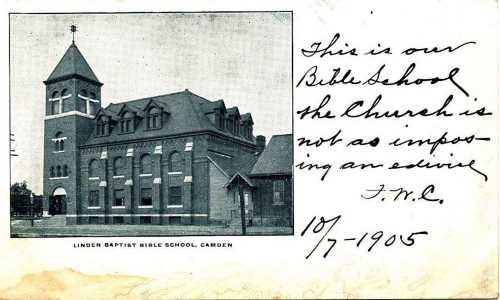 This is our
Bible School
the Church is
not as impos-
ing an edivice
F.W.C.
10/7-1905
LINDEN BAPTIST BIBLE SCHOOL, CAMDEN